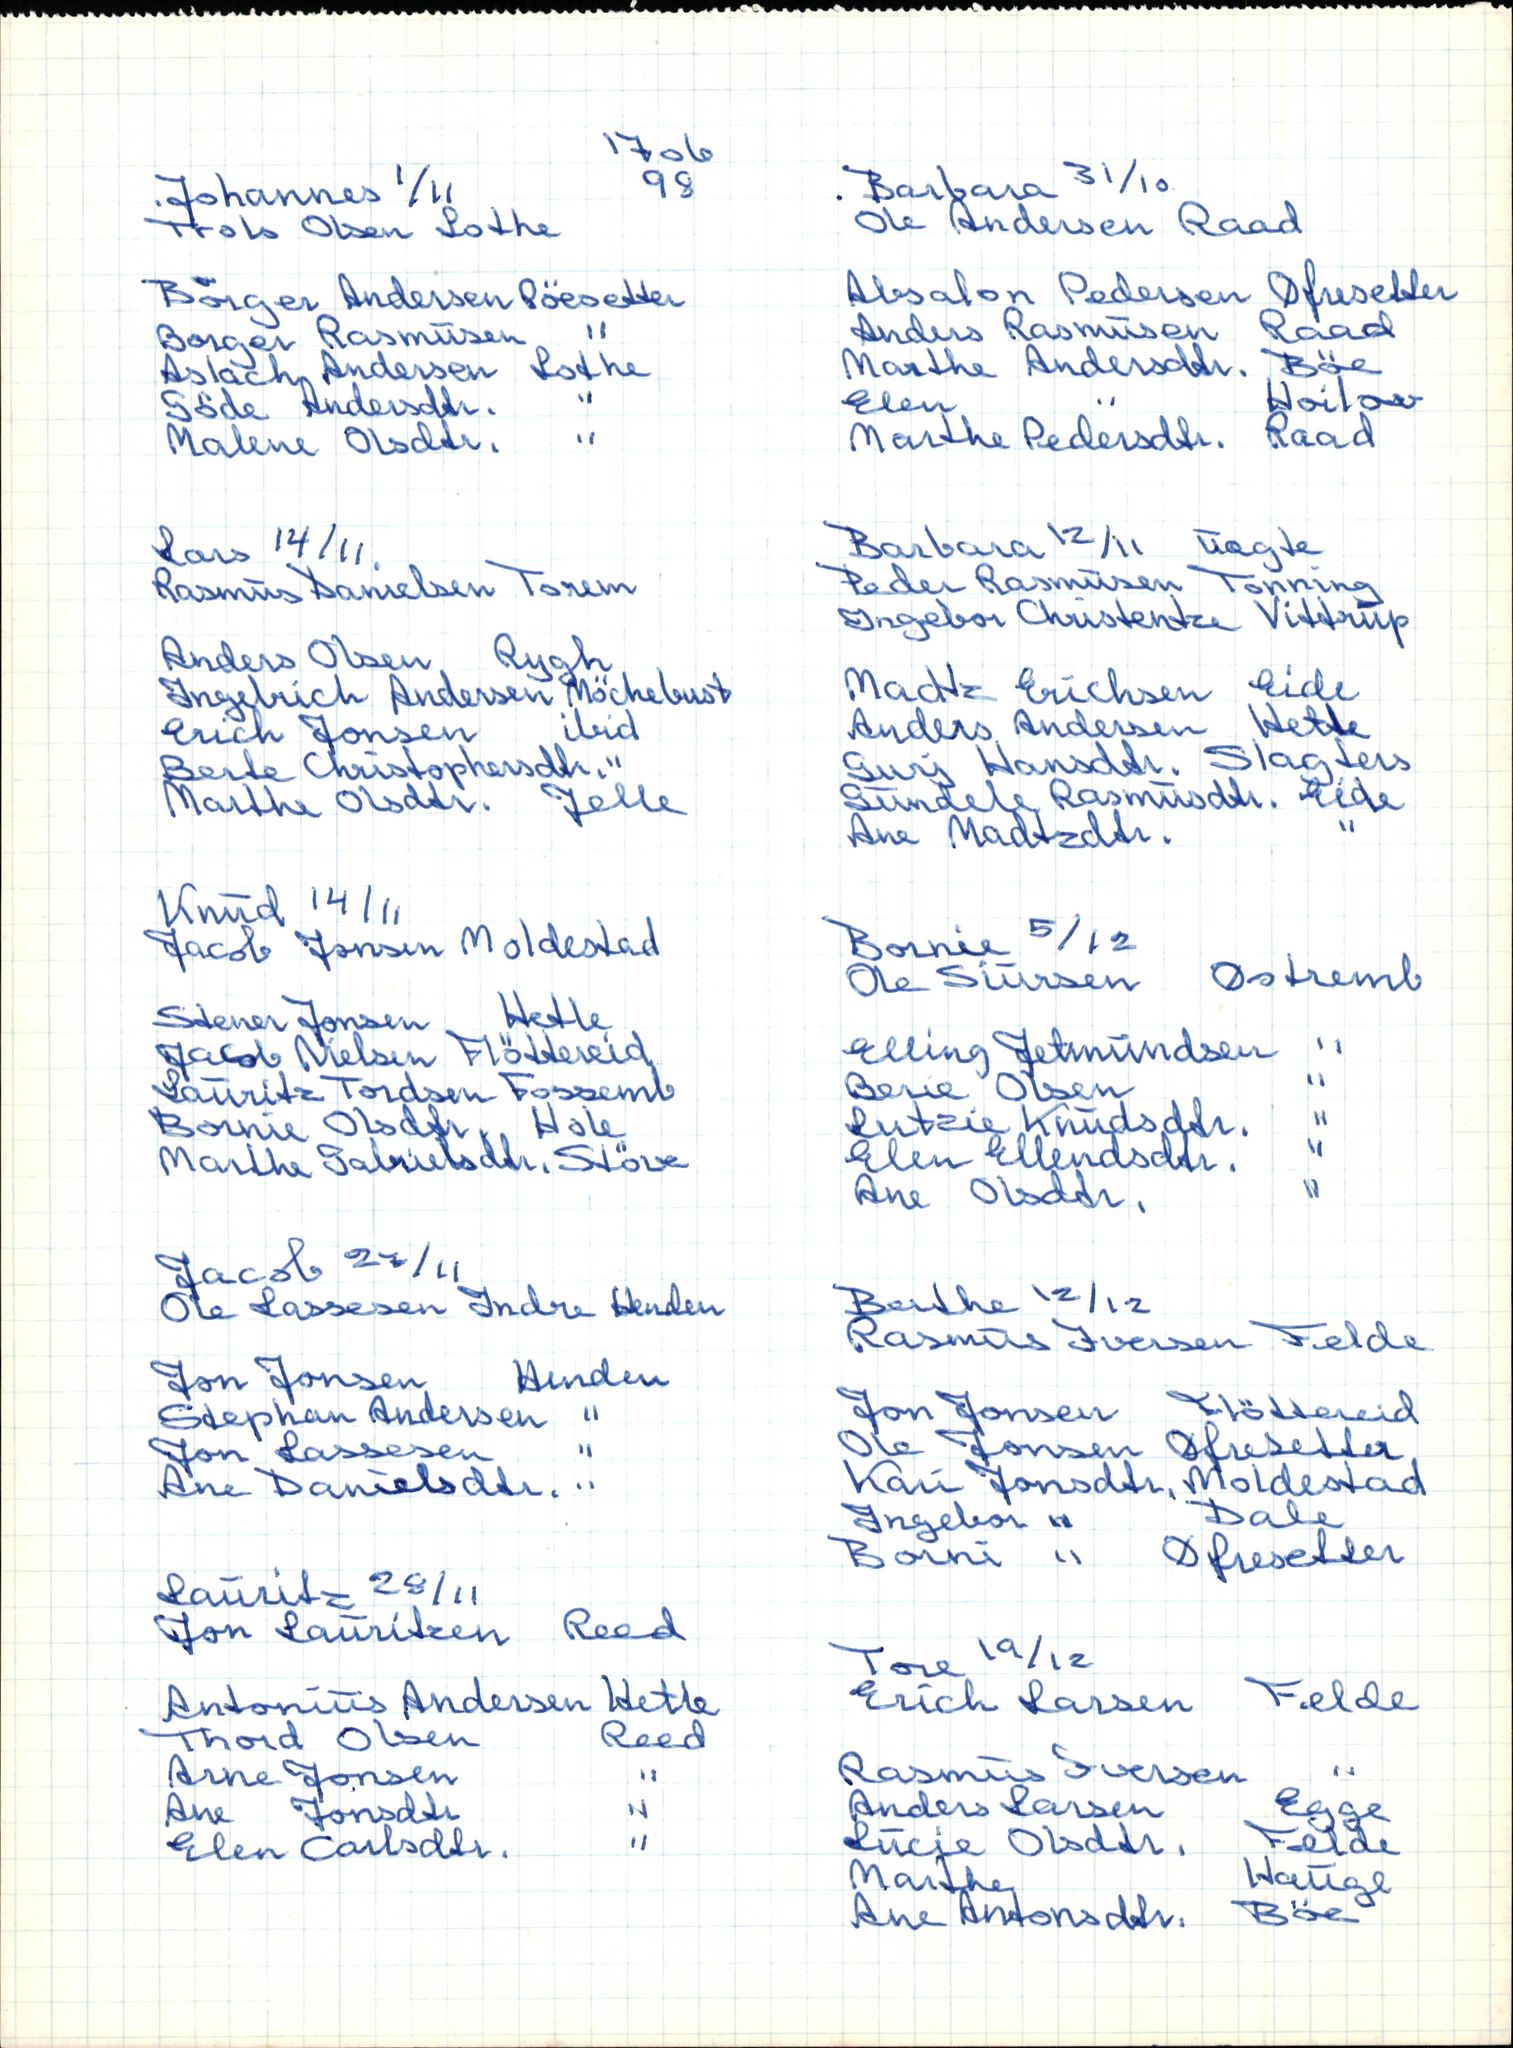 1706
98
.Johannes 1/11
Trols Olsen Lothe
Börger Andersen Pöesetter
Borger Rasmusen "
Aslach Andersen Lothe
Göde Andersdtr. "
Malene Olsdtr. "
Lars 14/11.
Rasmus Danielsen Torem
Anders Olsen Rygh
Ingebrich Andersen Möchebust
Erich Jonsen ibid
Berte Christophersdtr. "
Marthe Olsdtr. Jelle
Knud 14/11
Jacob Jonsen Moldestad
Stener Jonsen Hetle
Jacob Nielsen Flöttereid
Lauritz Tordsen Fossemb
Bornie Olsdtr. Hole
Marthe Gabrielsdtr. Störe
Jacob /11
Ole Lassesen Indre Henden
Jon Jonsen Henden
Stephan Andersen "
Jon Lassesen "
Ane Danielsdtr. "
Lauritz 28/11
Jon Lauritzen Reed
Antonius Andersen Hetle
Thord Olsen Reed
Arne Jonsen "
Ane Jonsdtr "
Elen Carlsdtr. "
. Barbara 31/10
Ole Andersen Raad
Absalon Pedersen Øfresetter
Anders Rasmusen Raad
Marthe Andersdtr. Böe
Elen "
Marthe Pedersdtr. Raad
Barbara 12/11 uegte
Peder Rasmusen Tonning
Ingebor Christentze Vittrup
Madtz Erichsen Eide
Anders Andersen Hetle
Gurj Hansdtr. Slagters
Gundele Rasmusdtr. Eide
Ane Madtzdtr. "
Bornie 5/12
Ole Siursen Østremb
Elling Jetmundsen "
Berie Olsen "
Lutzie Knudsdtr. "
Elen Ellendsdtr. "
Ane Olsdtr. "
Berthe 12/12
Rasmus Iversen Felde
Jon Jonsen Flöttereid
Ole Jonsen Øfresetter
Kari Jonsdtr. Moldestad
Ingebor " Dale
Borni " Øfresetter
Tore 19/12
Erich Larsen Felde
Rasmus Iversen "
Anders Larsen Egge
Lucie Olsdtr. Felde
Marthe Hauge
Ane Antonsdtr. Böe